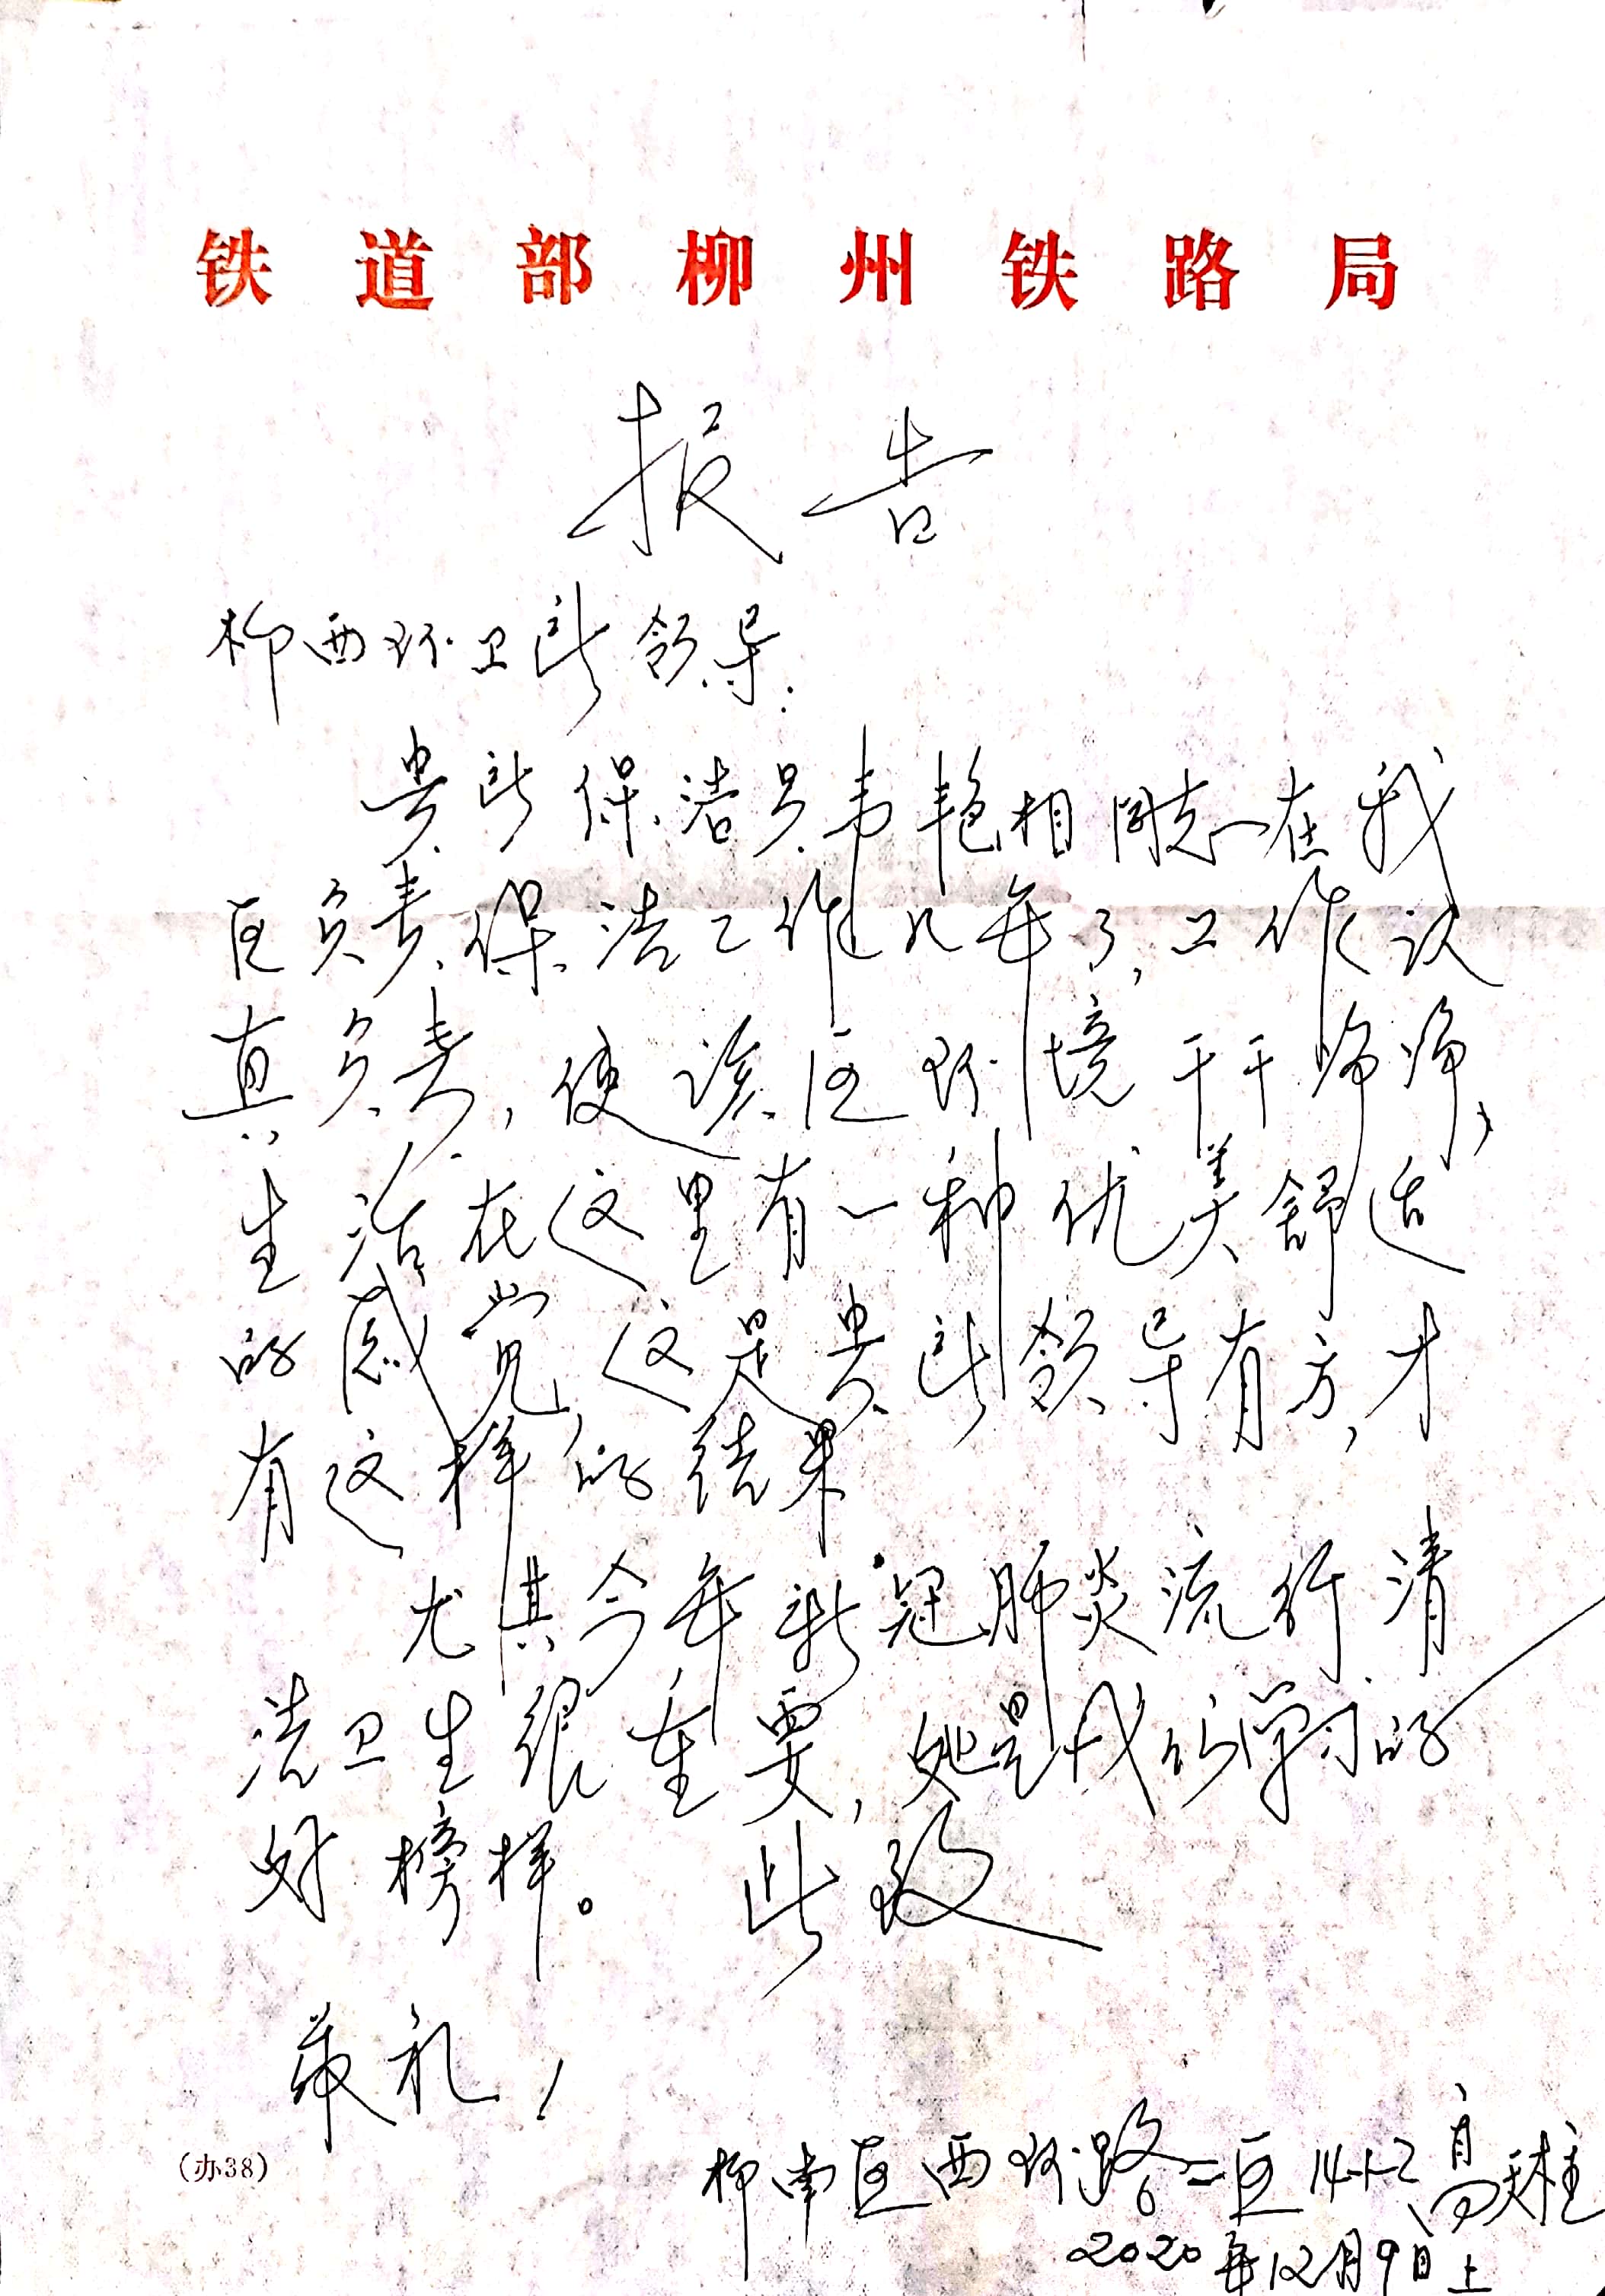 铁道部柳州铁路局
报告
柳西环卫所领导:
贵所保洁员韦艳相同志在我
区负责保洁工作几年了,工作认
真负责,使该区环境干干净净,
生活在这里有一种优美舒适
的感觉,这是贵所领导有方,才
有这样的结果
尤其今年新冠肺炎流行清
洁卫生很重要,她是我们学习的
好榜样。 此致
敬礼!
(办38)
柳南区西环路二区14-1-2 高天柱
2020年12月9日上